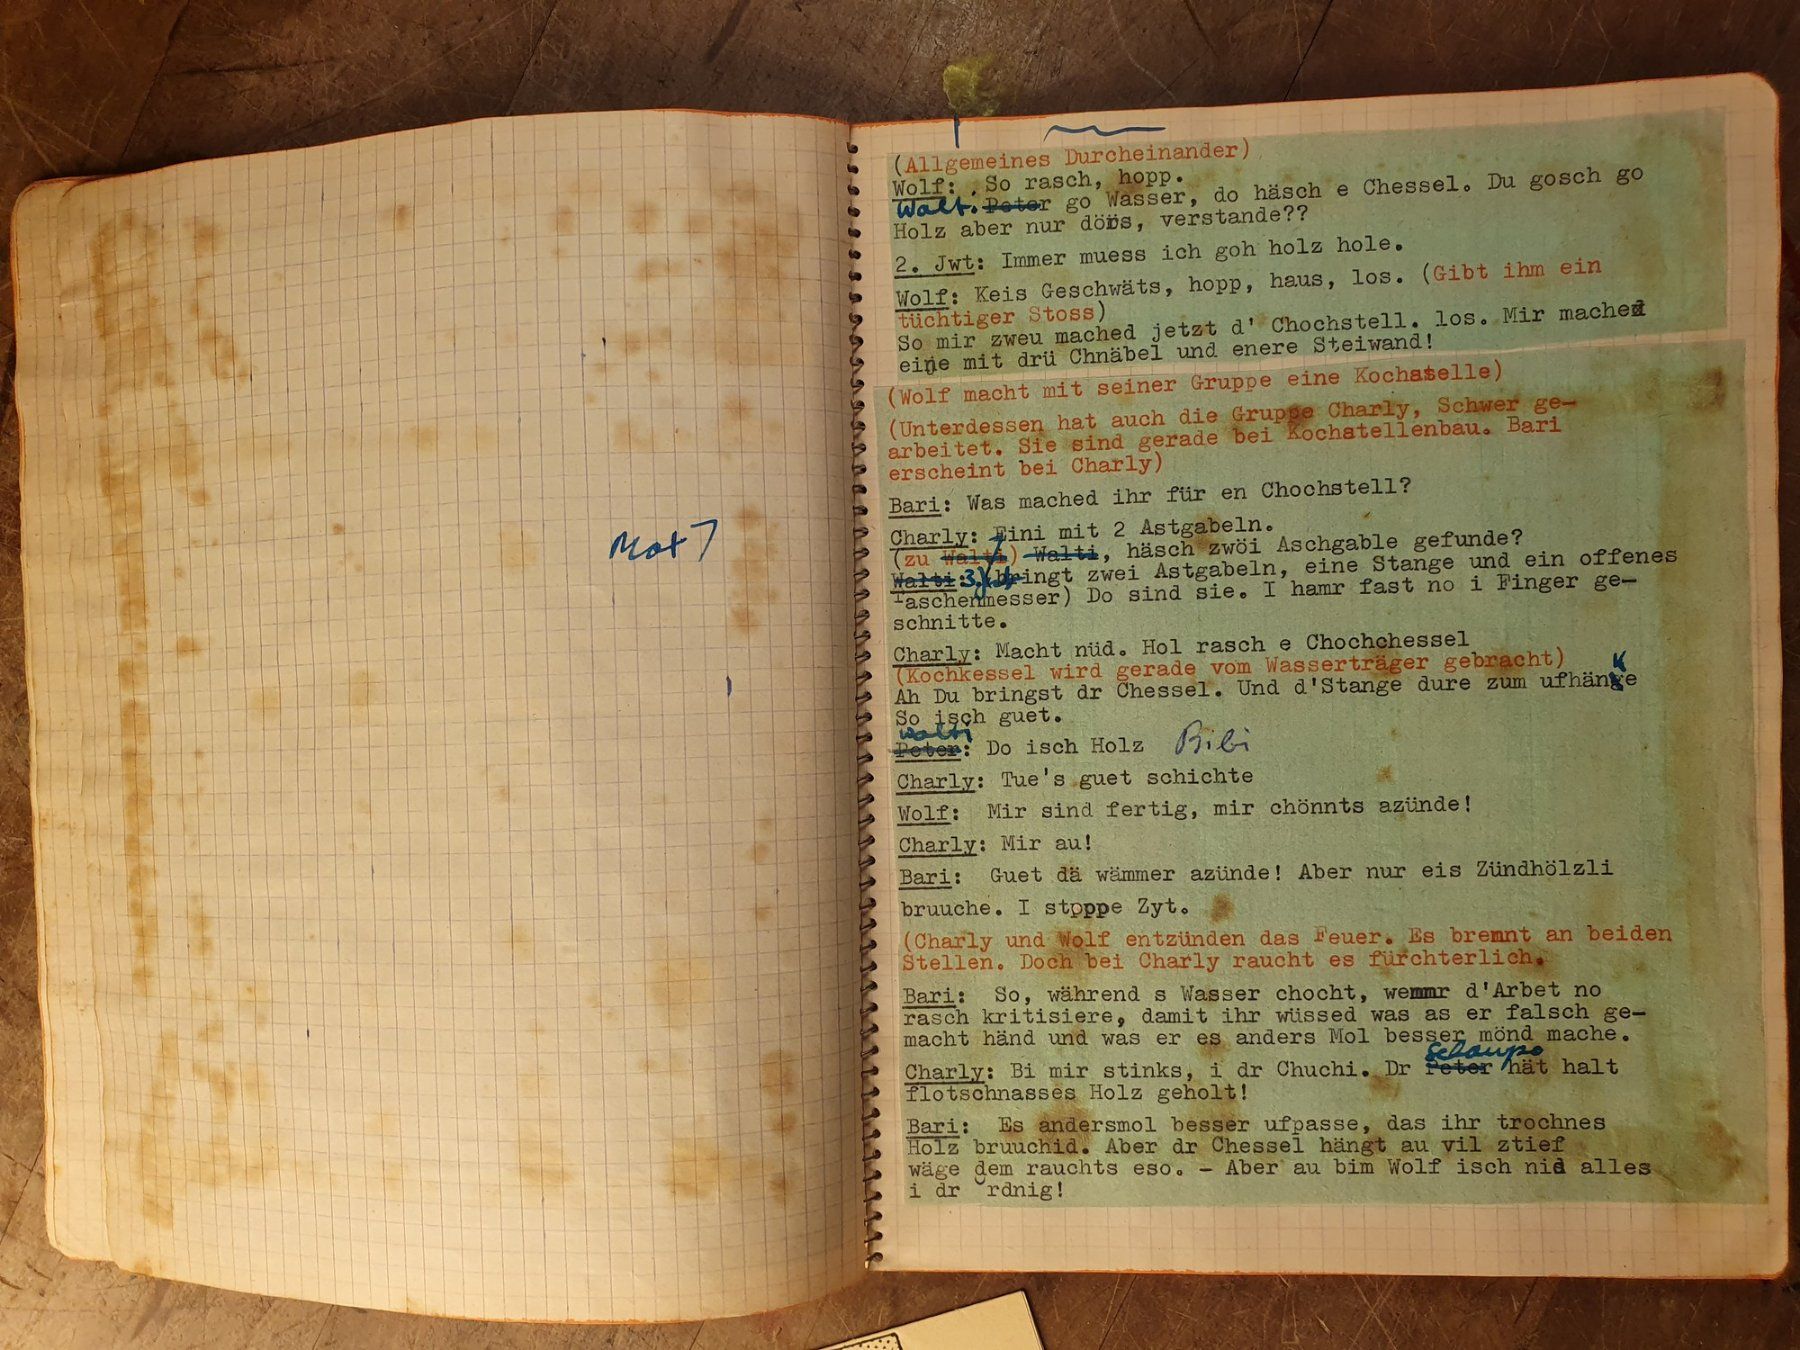 (Allgemeines Durcheinander)
Wolf: So rasch, hopp.
Walt. Peter go Wasser, do häsch e Chessel. Du gosch go
Holz aber nur dörs, verstande??
2. Jwt: Immer muess ich goh holz hole.
Wolf: Keis Geschwäts, hopp, haus, los. (Gibt ihm ein
tüchtiger Stoss)
So mir zweu mached jetzt d' Chochstell. los. Mir mached
eine mit drü Chnäbel und enere Steiwand!
(Wolf macht mit seiner Gruppe eine Kochstelle)
(Unterdessen hat auch die Gruppe Charly, Schwer ge-
arbeitet. Sie sind gerade bei Kochstellenbau. Bari
erscheint bei Charly)
Bari: Was mached ihr für en Chochstell?
Charly: Eini mit 2 Astgabeln.
(zu Walti) Walti, häsch zwöi Aschgable gefunde?
Walti: 3. (bringt zwei Astgabeln, eine Stange und ein offenes
Taschenmesser) Do sind sie. I hamr fast no i Finger ge-
schnitte.
Charly: Macht nüd. Hol rasch e Chochchessel
(Kochkessel wird gerade vom Wasserträger gebracht)
Ah Du bringst dr Chessel. Und d'Stange dure zum ufhänke
So isch guet.
Walti
Peter: Do isch Holz Bibi
Charly: Tue's guet schichte
Wolf: Mir sind fertig, mir chönnts azünde!
Charly: Mir au!
Bari: Guet dä wämmer azünde! Aber nur eis Zündhölzli
bruuche. I stoppe Zyt.
(Charly und Wolf entzünden das Feuer. Es brennt an beiden
Stellen. Doch bei Charly raucht es fürchterlich.
Bari: So, während s Wasser chocht, wemmr d'Arbet no
rasch kritisiere, damit ihr wüssed was as er falsch ge-
macht händ und was er es anders Mol besser mönd mache.
Charly: Bi mir stinks, i dr Chuchi. Dr Peter hät halt
flotschnasses Holz geholt!
Bari: Es andersmol besser ufpasse, das ihr trochnes
Holz bruuchid. Aber dr Chessel hängt au vil ztief
wäge dem rauchts eso. - Aber au bim Wolf isch nid alles
i dr Ordnig!